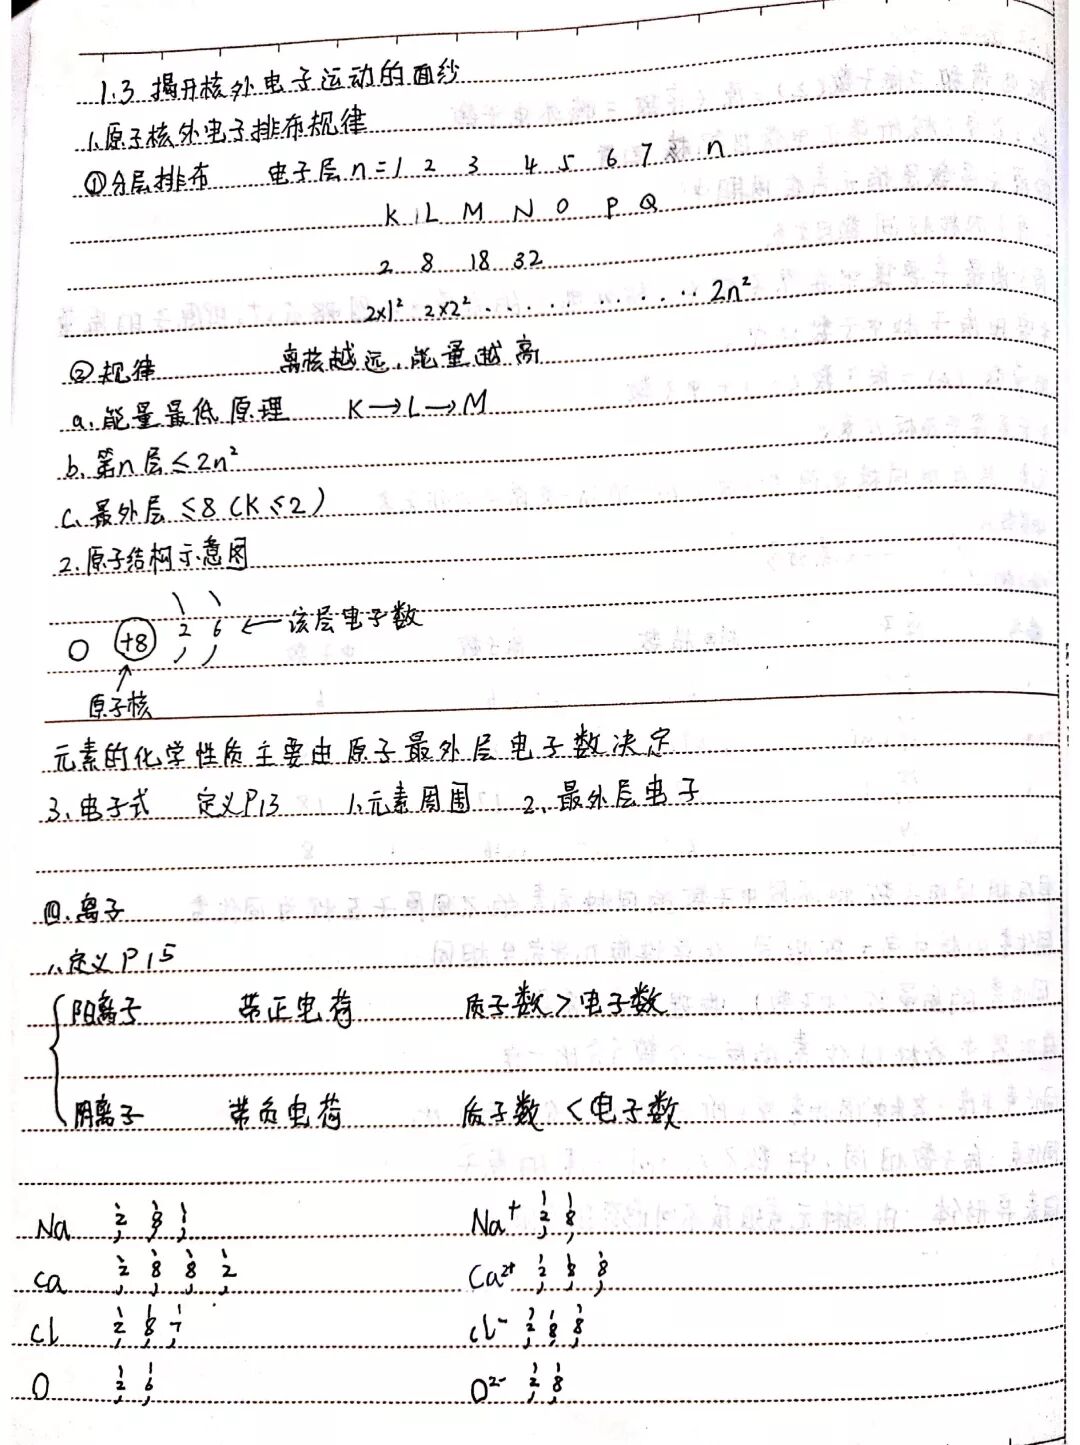 1.3 揭开核外电子运动的面纱
1.原子核外电子排布规律
①分层排布 电子层 n=1 2 3 4 5 6 7 n
K L M N O P Q
2 8 18 32
2×1² 2×2² ............ 2n²
②规律 离核越远,能量越高
a.能量最低原理 K→L→M
b.第n层≤2n²
c.最外层≤8(K≤2)
2.原子结构示意图
O +8 2 6 ←该层电子数
原子核
元素的化学性质主要由原子最外层电子数决定
3.电子式 定义P13 1.元素周围 2.最外层电子
四.离子
1.定义P15
阳离子 带正电荷 质子数>电子数
阴离子 带负电荷 质子数<电子数
Na 2 8 1 Na⁺ 2 8
Ca 2 8 8 2 Ca²⁺ 2 8 8
Cl 2 8 7 Cl⁻ 2 8 8
O 2 6 O²⁻ 2 8